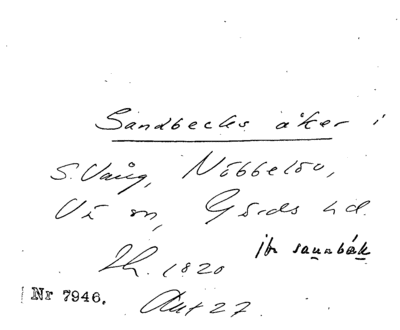 Sandbecks åker i
S. Vång, Nöbbelöv,
Vä sn, Gärds hd.
Jfr sannbäk
Lh. 1820
Nr 7946. Akt 27.